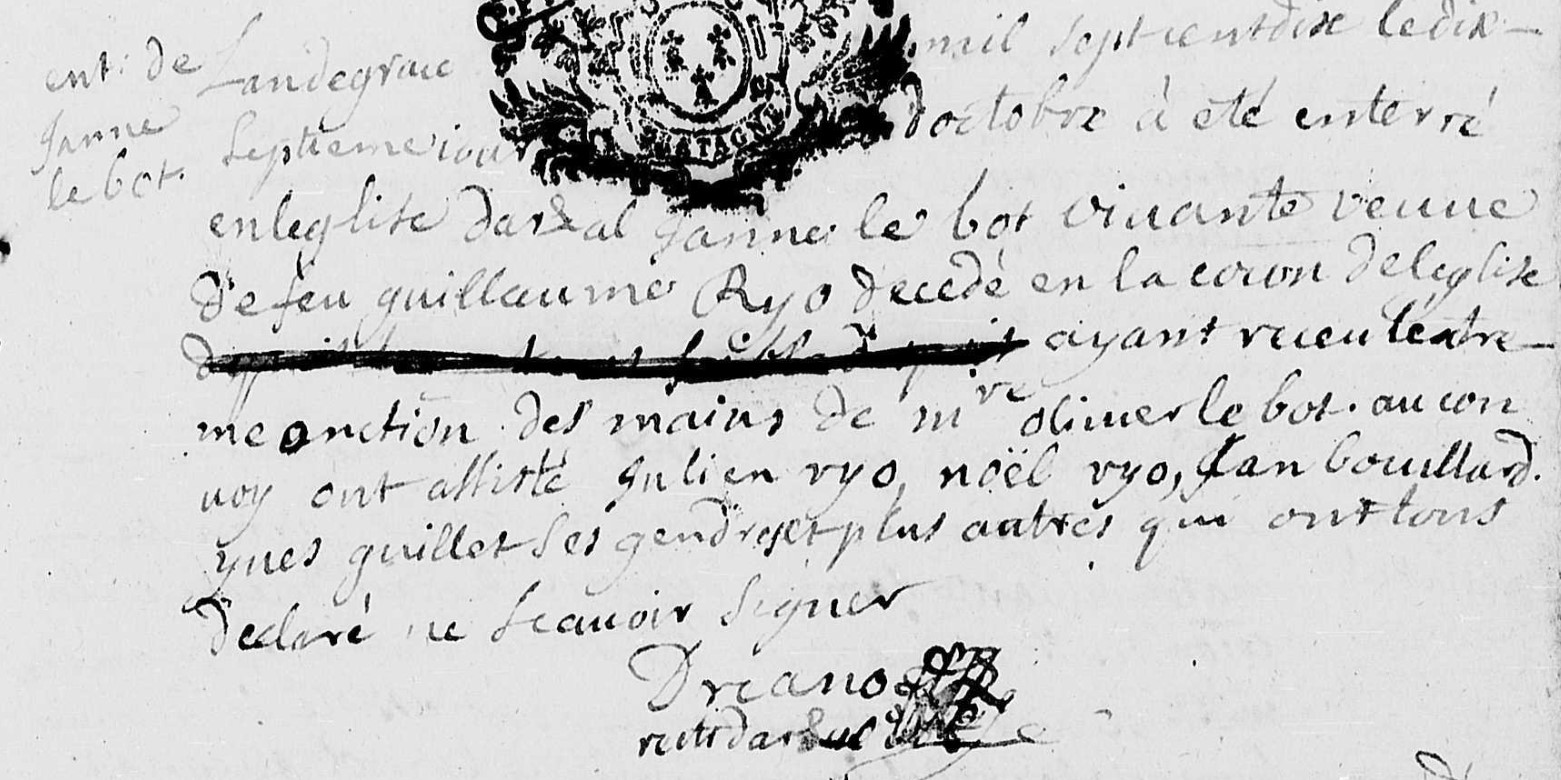 ent: de
Janne
le bot.
Landegrace mil sept cent dix le dix-
septieme iour doctobre à eté enterré
en leglise darzal Janne le bot viuante veuue
De feu guillaume Ryo decedé en la cour de leglise
ayant receu lextre-
me onction des mains de mre oliuier le bot. au con
uoy ont assisté Julien ryo, noël ryo, Jan bouillard.
yues guillet ses gendres et plus autres qui ont tous
declaré ne scauoir signer
Dreano
rectr darzal
BRETAGNE